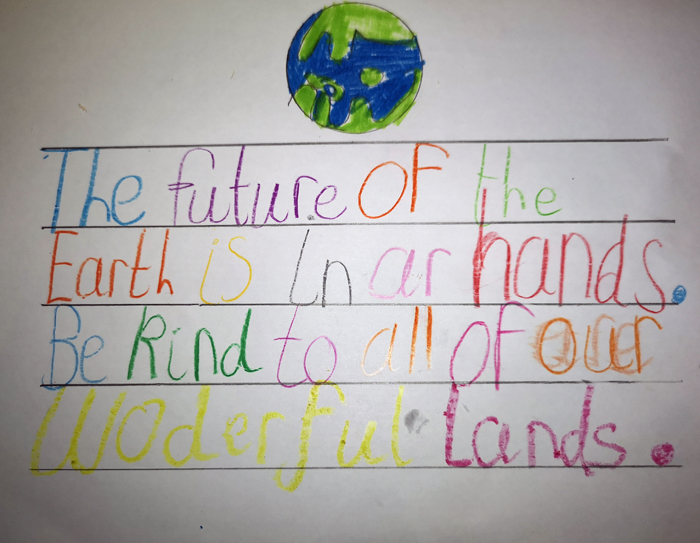 The future OF the
Earth is in ar hands.
Be kind to all of our
Woderful Lands.